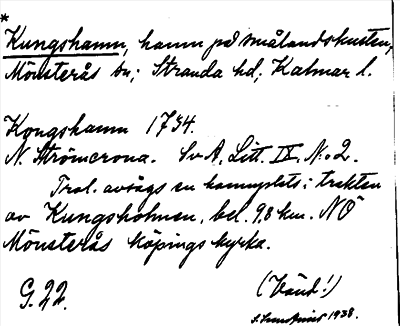 *
Kungshamn, hamn på smålandskusten,
Mönsterås sn; Stranda hd; Kalmar l.
Kongshamn 1734.
N. Strömcrona. SvA, Litt. IX. N:o 2.
Trol. avsågs en hamnplats i trakten
av Kungsholmen, bel. 9,8 km. NÖ
Mönsterås köpings kyrka.
G. 22. (Vänd!)
1938.